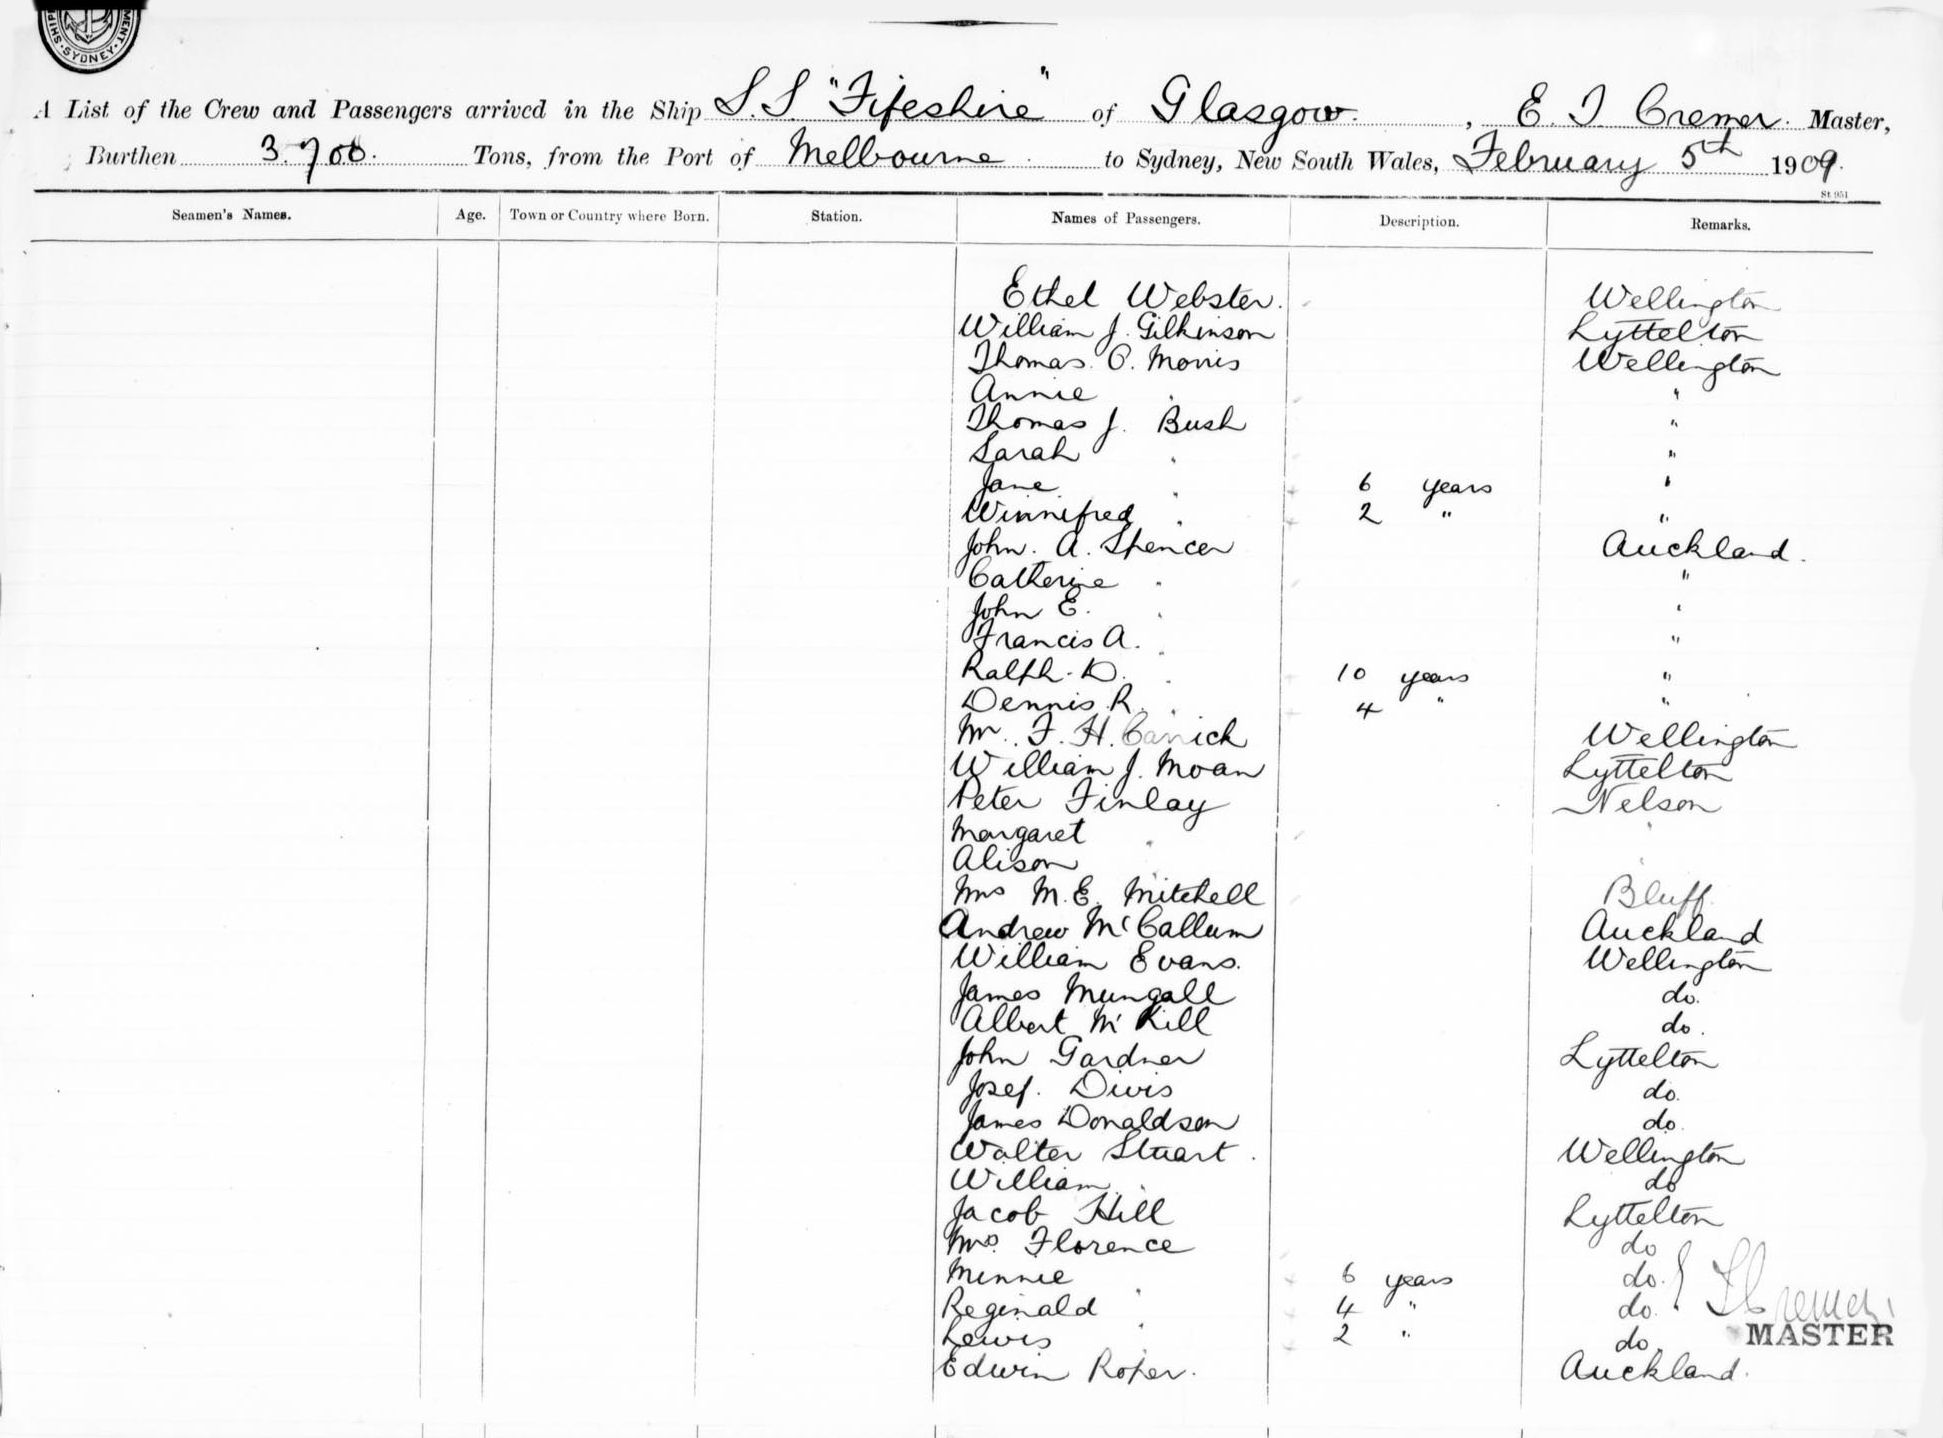 SHIP MENT · SYDNEY ·
A List of the Crew and Passengers arrived in the Ship S.S "Fifeshire" of Glasgow. , E. T Cremer. Master,
Burthen 3.700. Tons, from the Port of Melbourne to Sydney, New South Wales, February 5th 1909.
St 951
Seamen's Names. Age. Town or Country where Born. Station. Names of Passengers. Description. Remarks.
Ethel Webster. Wellington
William J. Gilkinson Lyttelton
Thomas O. Morris Wellington
Annie " "
Thomas J. Bush "
Sarah " "
Jane " 6 years "
Winnifred " 2 " "
John. A. Spencer Auckland.
Catherine " "
John E. " "
Francis A. " "
Ralph. D. " 10 years "
Dennis R. " 4 " "
Mr. F. H. Carrick Wellington
William J. Moan Lyttelton
Peter Finlay Nelson
Margaret " "
Alison " "
Mrs M. E. Mitchell Bluff.
Andrew McCallum Auckland
William Evans. Wellington
James Mungall do.
Albert McKill do.
John Gardner Lyttelton
Josef. Divis do.
James Donaldson do.
Walter Stuart. Wellington
William " do
Jacob Hill Lyttelton
Mrs. Florence do
Minnie 6 years do.
Reginald " 4 " do. Cremer
Lewis " 2 " do. MASTER
Edwin Roper. Auckland.